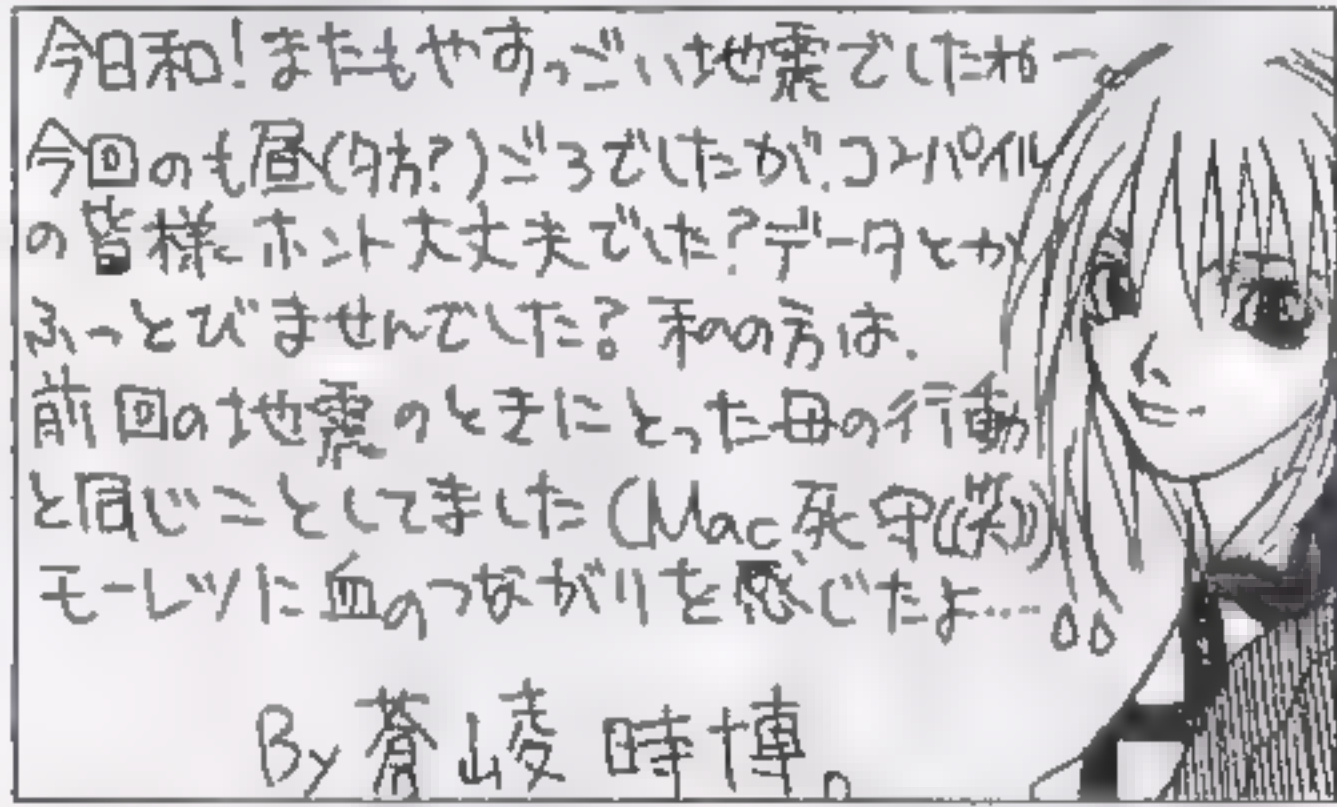 今日和!またもやすっごい地震でしたねー。
今回のも昼(夕方?)ごろでしたが、コンパイル
の皆様ホント大丈夫でした?データとか
ふっとびませんでした?私の方は、
前回の地震のときにとった母の行動
と同じことしてました(Mac死守((笑)))
モーレツに血のつながりを感じたよ……
By 蒼崚 時博。